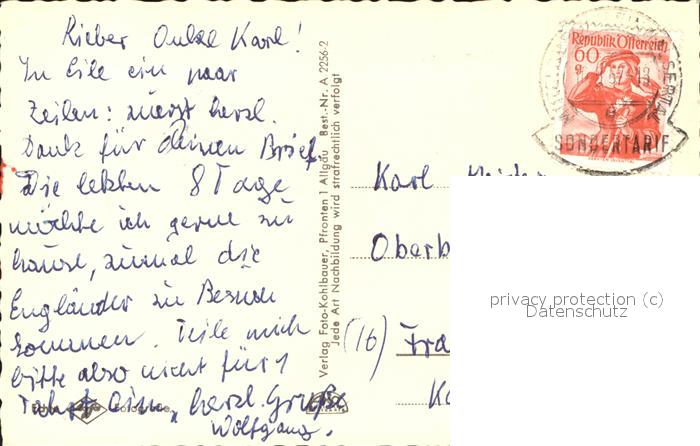 Lieber Onkel Karl!
In Eile ein paar
Zeilen: zuerst herzl.
Dank für deinen Brief.
Die letzten 8 Tage
möchte ich gerne zu
hause, zumal die
Engländer zu Besuch
kommen. Teile mich
bitte also nicht für 1
herzl. Grüße
Wolfgang.
Verlag Foto-Kohlbauer, Pfronten 1 Allgäu Best.-Nr. A 2256-2
Jede Art Nachbildung wird strafrechtlich verfolgt
Republik Österreich
60
g
57-18
SONDERTARIF
Karl
Oberb
(16) Fra
K
privacy protection (c)
Datenschutz